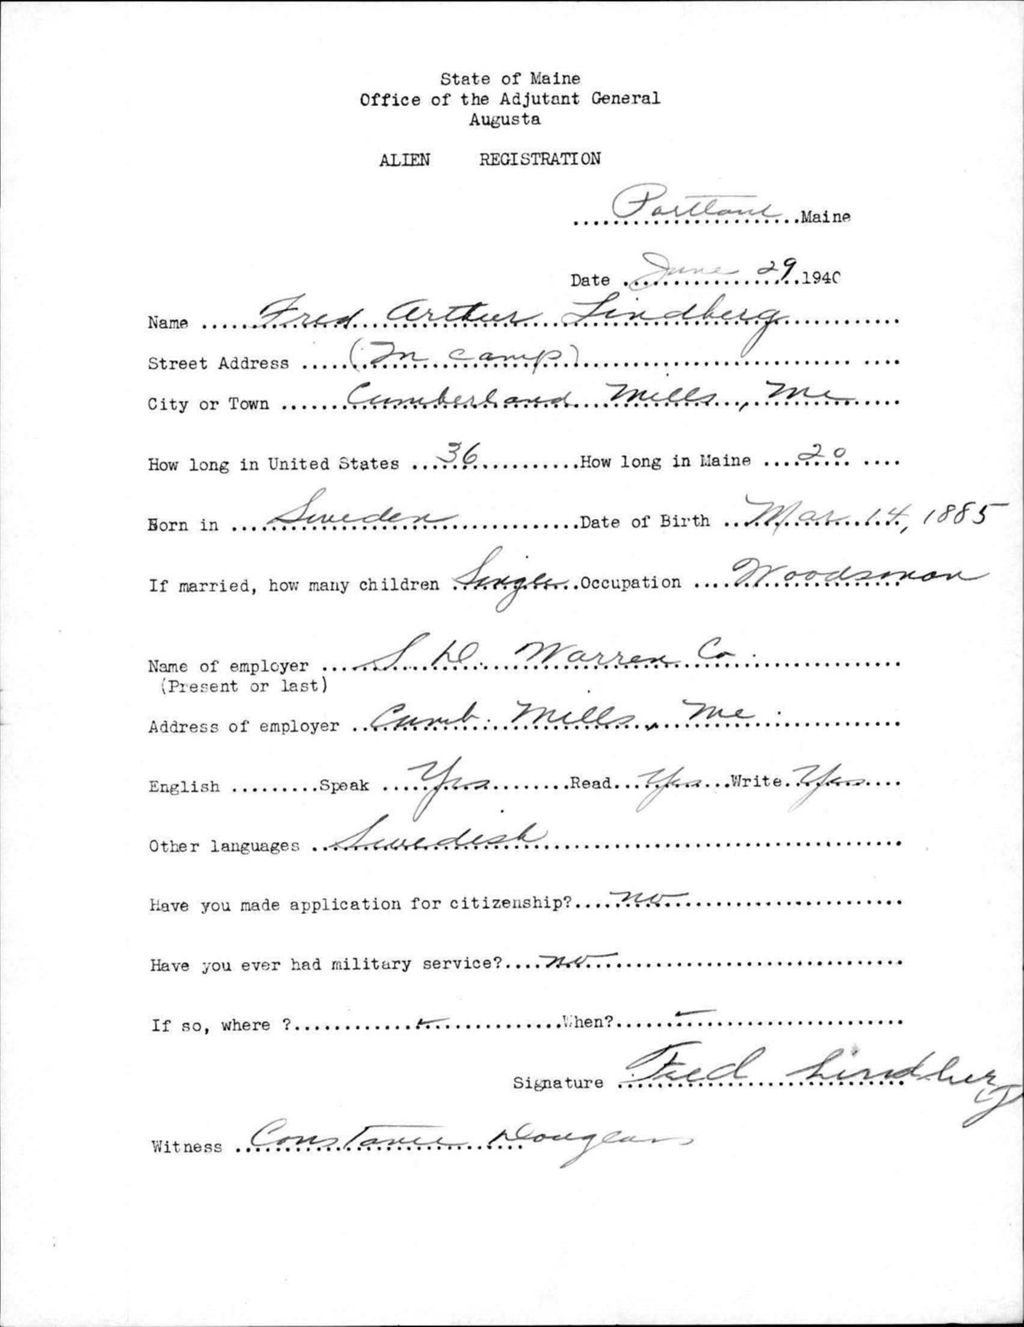 State of Maine
Office of the Adjutant General
Augusta
ALIEN REGISTRATION
Portland Maine
Date June 29 1940
Name Fred Arthur Lindberg
Street Address (In camp)
City or Town Cumberland Mills, Me
How long in United States 36 How long in Maine 20
Born in Sweden Date of Birth Mar. 14, 1885
If married, how many children Single Occupation Woodsman
Name of employer S. D. Warren Co.
(Present or last)
Address of employer Cumb. Mills, Me.
English Speak Yes Read Yes Write Yes
Other languages Swedish
Have you made application for citizenship? no
Have you ever had military service? no
If so, where ? - When? -
Signature Fred Lindberg
Witness Constance Douglass